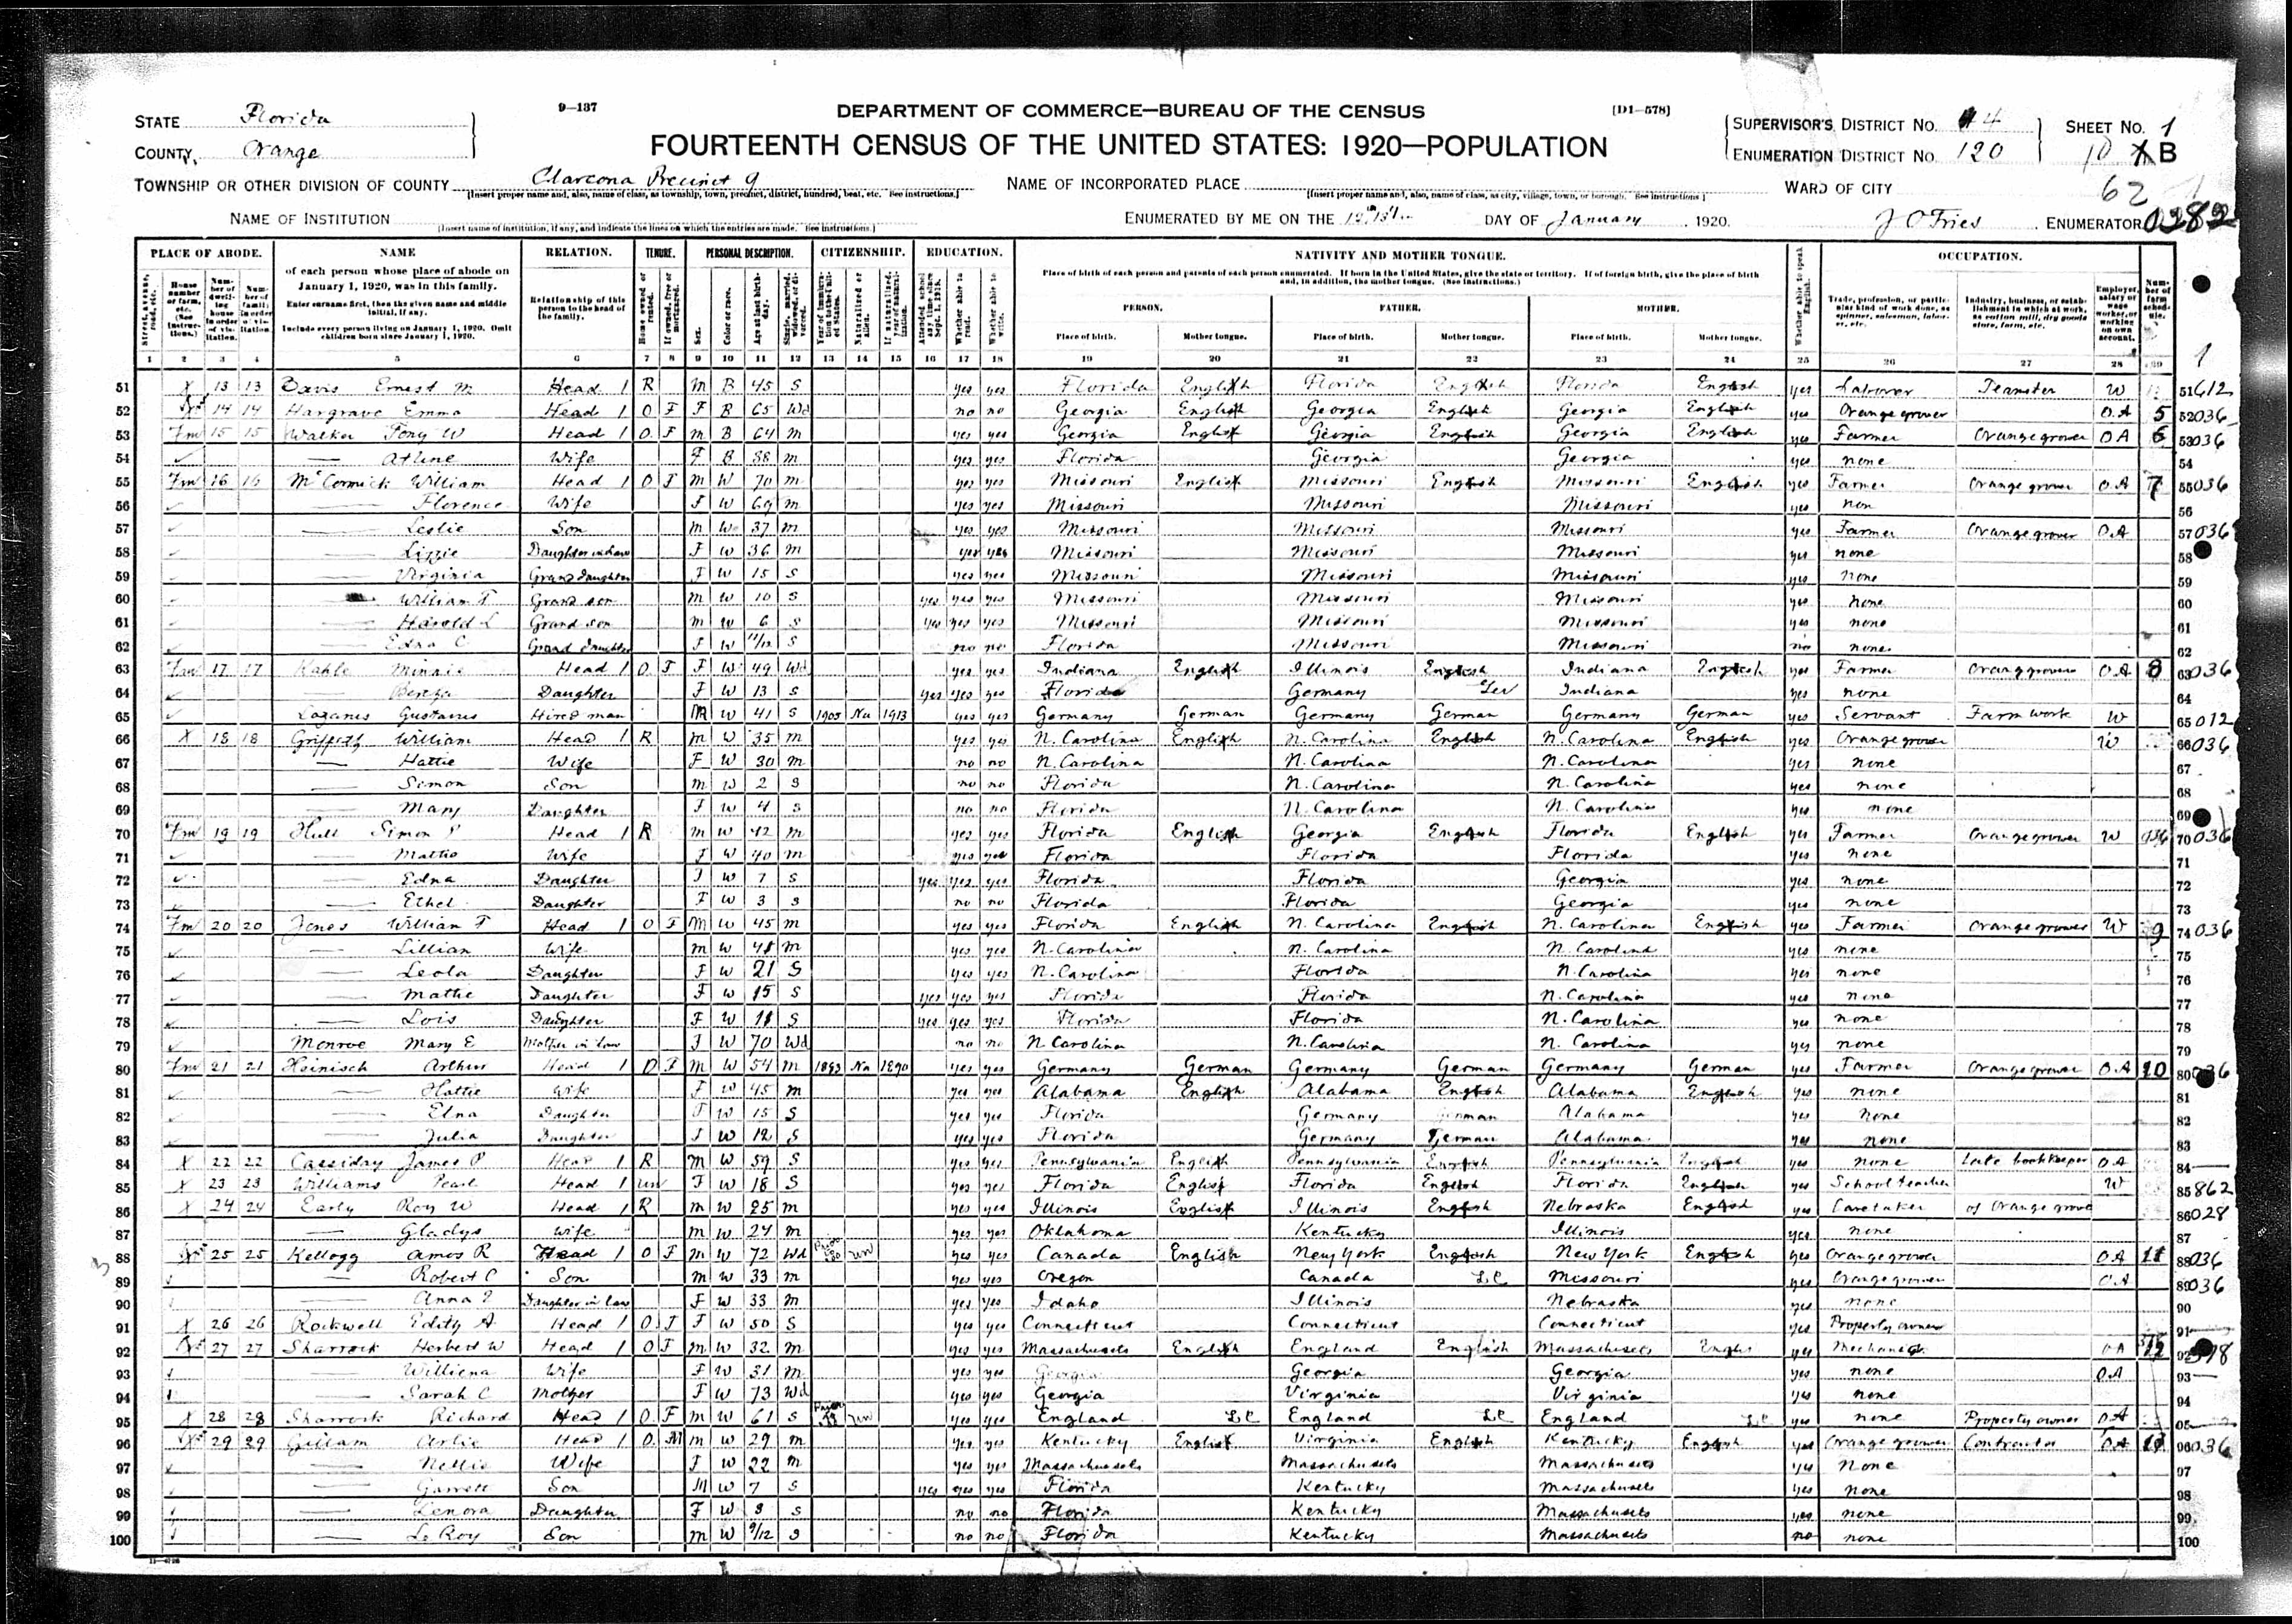 9—137
DEPARTMENT OF COMMERCE—BUREAU OF THE CENSUS
[D1—578]
STATE Florida
COUNTY Orange
FOURTEENTH CENSUS OF THE UNITED STATES: 1920—POPULATION
SUPERVISOR'S DISTRICT No. 4
ENUMERATION DISTRICT No. 120
SHEET No. 1
10 B
TOWNSHIP OR OTHER DIVISION OF COUNTY Clarcona Precinct 9
[Insert proper name and, also, name of class, as township, town, precinct, district, hundred, beat, etc. See instructions.]
NAME OF INCORPORATED PLACE
[Insert proper name and, also, name of class, as city, village, town, or borough. See instructions.]
WARD OF CITY
62
NAME OF INSTITUTION
[Insert name of institution, if any, and indicate the lines on which the entries are made. See instructions.]
ENUMERATED BY ME ON THE DAY OF January, 1920.
J O Fries ENUMERATOR
0282
PLACE OF ABODE. NAME RELATION. TENURE. PERSONAL DESCRIPTION. CITIZENSHIP. EDUCATION. NATIVITY AND MOTHER TONGUE. OCCUPATION.
of each person whose place of abode on January 1, 1920, was in this family.
Enter surname first, then the given name and middle initial, if any.
Include every person living on January 1, 1920. Omit children born since January 1, 1920.
Relationship of this person to the head of the family.
Place of birth of each person and parents of each person enumerated. If born in the United States, give the state or territory. If of foreign birth, give the place of birth and, in addition, the mother tongue. (See instructions.)
PERSON. FATHER. MOTHER.
Place of birth. Mother tongue. Place of birth. Mother tongue. Place of birth. Mother tongue.
1 2 3 4 5 6 7 8 9 10 11 12 13 14 15 16 17 18 19 20 21 22 23 24 25 26 27 28 29
51 X 13 13 Davis Ernest M Head 1 R M B 45 S yes yes Florida English Florida English Florida English yes Laborer Teamster W 51 612
52 14 14 Hargrave Emma Head 1 O F F B 65 Wd no no Georgia English Georgia English Georgia English yes Orange grower O A 5 52 036
53 Fm 15 15 Walker Tony W Head 1 O F M B 64 M yes yes Georgia English Georgia English Georgia English yes Farmer Orange grower O A 6 53 036
54 Athene Wife F B 38 M yes yes Florida Georgia Georgia yes none 54
55 Fm 16 16 McCormick William Head 1 O F M W 70 M yes yes Missouri English Missouri English Missouri English yes Farmer Orange grower O A 7 55 036
56 Florence Wife F W 69 M yes yes Missouri Missouri Missouri yes non 56
57 Leslie Son M W 37 M yes yes Missouri Missouri Missouri yes Farmer Orange grower O A 57 036
58 Lizzie Daughter in law F W 36 M yes yes Missouri Missouri Missouri yes none 58
59 Virginia Grand daughter F W 15 S yes yes Missouri Missouri Missouri yes none 59
60 William T Grand son M W 10 S yes yes yes Missouri Missouri Missouri yes none 60
61 Harold L Grand son M W 6 S yes yes yes Missouri Missouri Missouri yes none 61
62 Edna C Grand daughter F W 11/12 S no no Florida Missouri Missouri no none 62
63 Fm 17 17 Kahle Minnie Head 1 O F F W 49 Wd yes yes Indiana English Illinois English Indiana English yes Farmer Orange grower O A 8 63 036
64 Bertha Daughter F W 13 S yes yes yes Florida Germany Ger Indiana yes none 64
65 Lazarus Gustavus Hired man M W 41 S 1905 Na 1913 yes yes Germany German Germany German Germany German yes Servant Farm work W 65 012
66 X 18 18 Griffith William Head 1 R M W 35 M yes yes N. Carolina English N. Carolina English N. Carolina English yes Orange grower W 66 036
67 Hattie Wife F W 30 M no no N. Carolina N. Carolina N. Carolina yes none 67
68 Simon Son M W 2 S no no Florida N. Carolina N. Carolina yes none 68
69 Mary Daughter F W 4 S no no Florida N. Carolina N. Carolina yes none 69
70 Fm 19 19 Hull Simon P Head 1 R M W 42 M yes yes Florida English Georgia English Florida English yes Farmer Orange grower W 70 036
71 Mattie Wife F W 40 M yes yes Florida Florida Florida yes none 71
72 Edna Daughter F W 7 S yes yes yes Florida Florida Georgia yes none 72
73 Ethel Daughter F W 3 S no no Florida Florida Georgia yes none 73
74 Fm 20 20 Jones William F Head 1 O F M W 45 M yes yes Florida English N. Carolina English N. Carolina English yes Farmer Orange grower W 9 74 036
75 Lillian Wife M W 48 M yes yes N. Carolina N. Carolina N. Carolina yes none 75
76 Leola Daughter F W 21 S yes yes N. Carolina Florida N. Carolina yes none 76
77 Mattie Daughter F W 15 S yes yes yes Florida Florida N. Carolina yes none 77
78 Lois Daughter F W 11 S yes yes yes Florida Florida N. Carolina yes none 78
79 Monroe Mary E Mother in law F W 70 Wd no no N Carolina N. Carolina N. Carolina yes none 79
80 Fm 21 21 Heinisch Arthur Head 1 O F M W 54 M 1883 Na 1890 yes yes Germany German Germany German Germany German yes Farmer Orange grower O A 10 80 036
81 Hattie Wife F W 45 M yes yes Alabama English Alabama English Alabama English yes none 81
82 Elna Daughter F W 15 S yes yes Florida Germany German Alabama yes none 82
83 Julia Daughter F W 12 S yes yes Florida Germany German Alabama yes none 83
84 X 22 22 Cassiday James P Head 1 R M W 59 S yes yes Pennsylvania English Pennsylvania English Pennsylvania English yes none Late bookkeeper O A 84
85 X 23 23 Williams Pearl Head 1 un F W 18 S yes yes Florida English Florida English Florida English yes School teacher W 85 862
86 X 24 24 Early Roy W Head 1 R M W 25 M yes yes Illinois English Illinois English Nebraska English yes Caretaker of Orange grove 86 028
87 Gladys Wife M W 24 M yes yes Oklahoma Kentucky Illinois yes none 87
88 25 25 Kellogg Amos R Head 1 O F M W 72 Wd un yes yes Canada English New York English New York English yes Orange grower O A 11 88 036
89 Robert C Son M W 33 M yes yes Oregon Canada Missouri yes Orange grower O A 89 036
90 Anna Daughter in law F W 33 M yes yes Idaho Illinois Nebraska yes none 90
91 X 26 26 Rockwell Edity A Head 1 O F F W 50 S yes yes Connecticut Connecticut Connecticut yes Property owner 91
92 27 27 Sharrock Herbert W Head 1 O F M W 32 M yes yes Massachusets English England English Massachusets yes O A 12 92
93 Williena Wife F W 31 M yes yes Georgia Georgia Georgia yes none O A 93
94 Sarah C Mother F W 73 Wd yes yes Georgia Virginia Virginia yes none 94
95 X 28 28 Sharrock Richard Head 1 O F M W 61 S un yes yes England England England yes none Property owner O A 95
96 29 29 Gillam Arlie Head 1 O M M W 29 M yes yes Kentucky English Virginia English Kentucky English yes Orange grower Contractor O A 13 96 036
97 Nellie Wife F W 22 M yes yes Massachusets Massachusets Massachusets yes None 97
98 Garrett Son M W 7 S yes yes yes Florida Kentucky Massachusets yes none 98
99 Lenora Daughter F W 3 S no no Florida Kentucky Massachusets yes none 99
100 Le Roy Son M W 9/12 S no no Florida Kentucky Massachusets no none 100